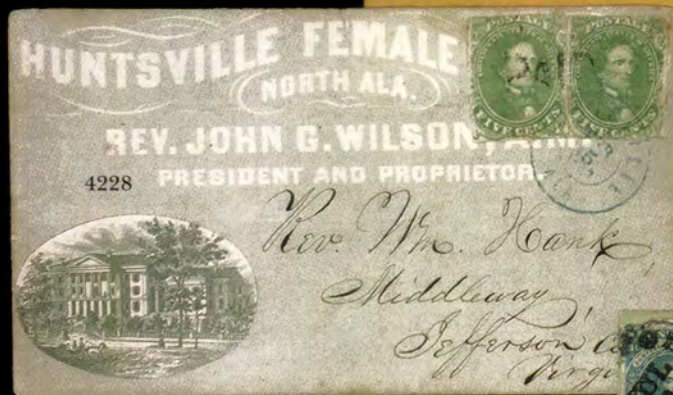 HUNTSVILLE FEMALE
NORTH ALA.
REV. JOHN G. WILSON,
PRESIDENT AND PROPRIETOR.
4228
POSTAGE
FIVE CENTS
POSTAGE
FIVE CENTS
PAID
Rev. Wm. Hank,
Middleway,
Jefferson Co
Virgi